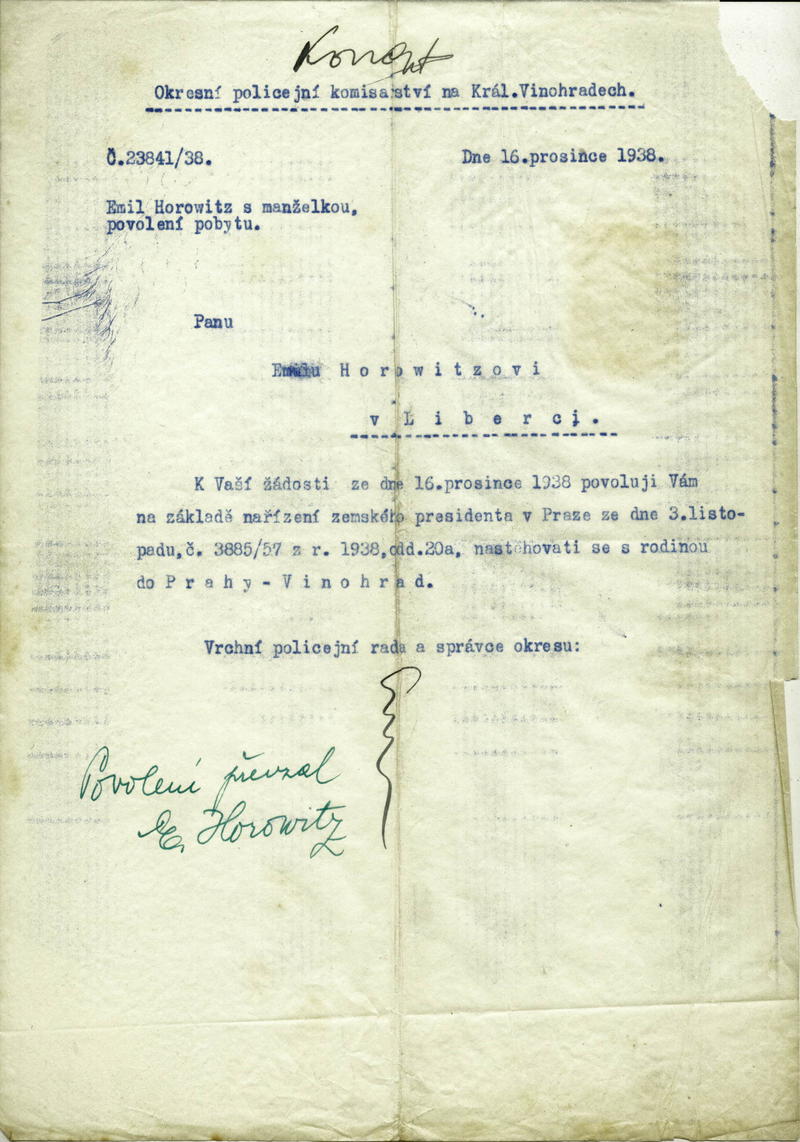 Koncept
Okresní policejní komisařství na Král.Vinohradech.
Č.23841/38.
Dne 16.prosince 1938.
Emil Horowitz s manželkou,
povolení pobytu.
Panu
Emilu Horowitzovi
v Liberci.
K Vaší žádosti ze dne 16.prosince 1938 povoluji Vám
na základě nařízení zemského presidenta v Praze ze dne 3.listo-
padu,č. 3885/57 z r. 1938,odd.20a, nastěhovati se s rodinou
do Prahy-Vinohrad.
Vrchní policejní rada a správce okresu:
Povolení převzal
E. Horowitz